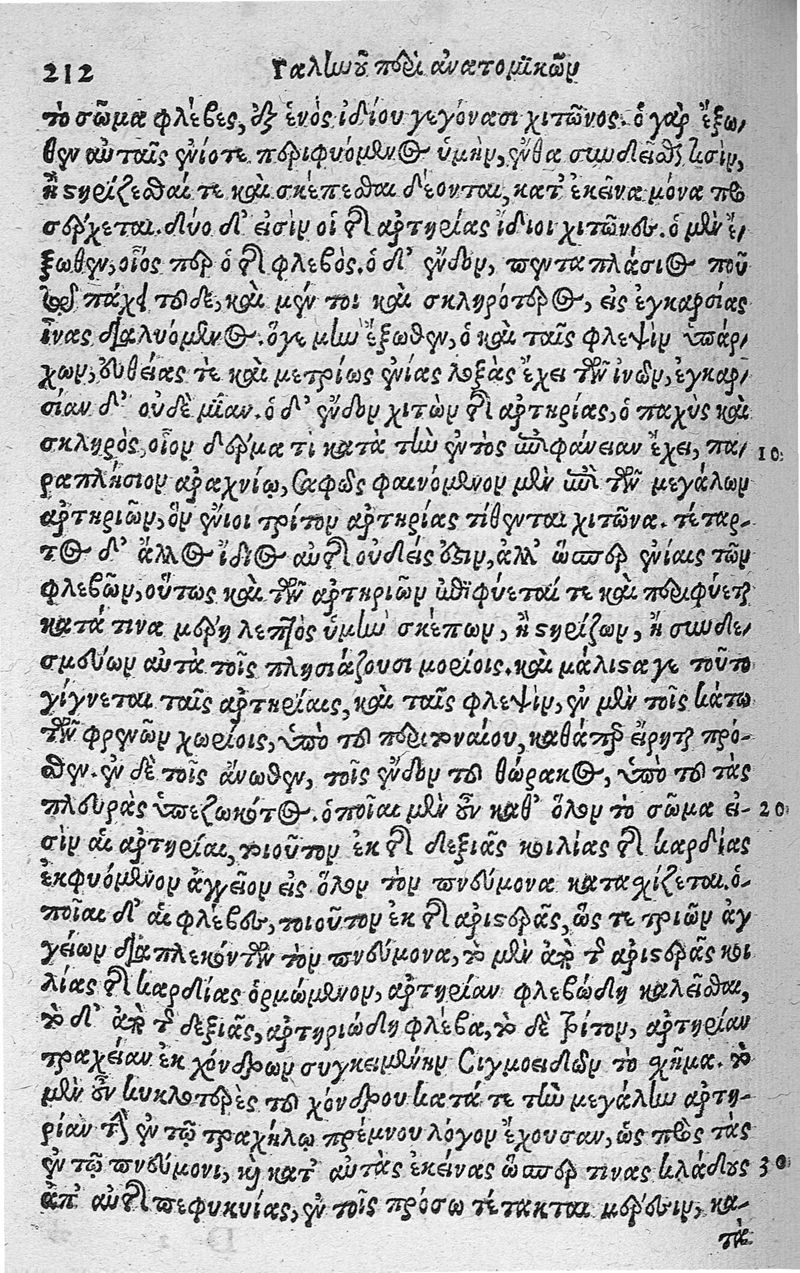 212 Γαληνοῦ περὶ ἀνατομικῶν
τὸ σῶμα φλέβες, ἐξ ἑνὸς ἰδίου γεγόνασι χιτῶνος. ὁ γὰρ ἔξω-
θεν αὐταῖς ἐνίοτε περιφυόμενος ὑμὴν, ἔνθα συνδεῖσθαί τισιν,
ἢ στηρίζεσθαί τε καὶ σκέπεσθαι δέονται, κατ' ἐκεῖνα μόνα προ
σέρχεται. δύο δ' εἰσὶν οἱ τῆς ἀρτηρίας ἴδιοι χιτῶνες. ὁ μὲν ἔ-
ξωθεν, οἷός περ ὁ τῆς φλεβός. ὁ δ' ἔνδον, πενταπλάσιος που
τοῦδε πάχει τοῦδε, καὶ μέν τοι καὶ σκληρότερος, εἰς ἐγκαρσίας
ἶνας διαλυόμενος. ὅγε μὴν ἔξωθεν, ὁ καὶ ταῖς φλεψὶν ὑπάρ-
χων, εὐθείας τὲ καὶ μετρίως ἐνίας λοξὰς ἔχει τῶν ἰνῶν, ἐγκαρ-
σίαν δ' οὐδὲ μίαν. ὁ δ' ἔνδον χιτὼν τῆς ἀρτηρίας, ὁ παχὺς καὶ
σκληρὸς, οἷον δέρμα τι κατὰ τὴν ἐντὸς ἐπιφάνειαν ἔχει, πα- 10
ραπλήσιον ἀραχνίῳ, σαφῶς φαινόμενον μὲν ἐπὶ τῶν μεγάλων
ἀρτηριῶν, ὃν ἔνιοι τρίτον ἀρτηρίας τίθενται χιτῶνα. τέταρ-
τος δ' ἄλλος ἴδιος αὐτῆς οὐδείς ἐστιν, ἀλλ' ὥσπερ ἐνίαις τῶν
φλεβῶν, οὕτως καὶ τῶν ἀρτηριῶν ἐπιφύεταί τε καὶ περιφύεται
κατά τινα μέρη λεπτὸς ὑμὴν σκέπων, ἢ στηρίζων, ἢ συνδε-
σμεύων αὐτὰ τοῖς πλησιάζουσι μορίοις. καὶ μάλιστα γε τοῦτο
γίγνεται ταῖς ἀρτηρίαις, καὶ ταῖς φλεψὶν, ἐν μὲν τοῖς κάτω
τῶν φρενῶν χωρίοις, ὑπὸ τοῦ περιτοναίου, καθάπερ εἴρηται πρό-
σθεν. ἐν δὲ τοῖς ἄνωθεν, τοῖς ἔνδον τοῦ θώρακος, ὑπὸ τοῦ τὰς
πλευρὰς ὑπεζωκότος. ὁποῖαι μὲν οὖν καθ' ὅλον τὸ σῶμα εἰ- 20
σὶν αἱ ἀρτηρίαι, τοιοῦτον ἐκ τῆς δεξιᾶς κοιλίας τῆς καρδίας
ἐκφυόμενον ἀγγεῖον εἰς ὅλον τὸν πνεύμονα κατασχίζεται. ὁ-
ποῖαι δ' αἱ φλέβες, τοιοῦτον ἐκ τῆς ἀριστερᾶς, ὥς τε τριῶν ἀγ
γείων διαπλεκόντων τὸν πνεύμονα, τὸ μὲν ἀπὸ τῆς ἀριστερᾶς κοι
λίας τῆς καρδίας ὁρμώμενον, ἀρτηρίαν φλεβώδη καλεῖσθαι,
τὸ δ' ἀπὸ τῆς δεξιᾶς, ἀρτηριώδη φλέβα, τὸ δὲ τρίτον, ἀρτηρίαν
τραχεῖαν ἐκ χόνδρων συγκειμένην σιγμοειδῶν τὸ σχῆμα. τὸ
μὲν οὖν κυκλοτερὲς τοῦ χόνδρου κατά τε τὴν μεγάλην ἀρτη-
ρίαν τὴν ἐν τῷ τραχήλῳ πρέμνου λόγον ἔχουσαν, ὡς πρὸς τὰς
ἐν τῷ πνεύμονι, καὶ κατ' αὐτὰς ἐκείνας ὥσπερ τινας κλάδους 30
ἀπ' αὐτῆς πεφυκυίας, ἐν τοῖς πρόσω τέτακται μέρεσιν, κα-
τὰ